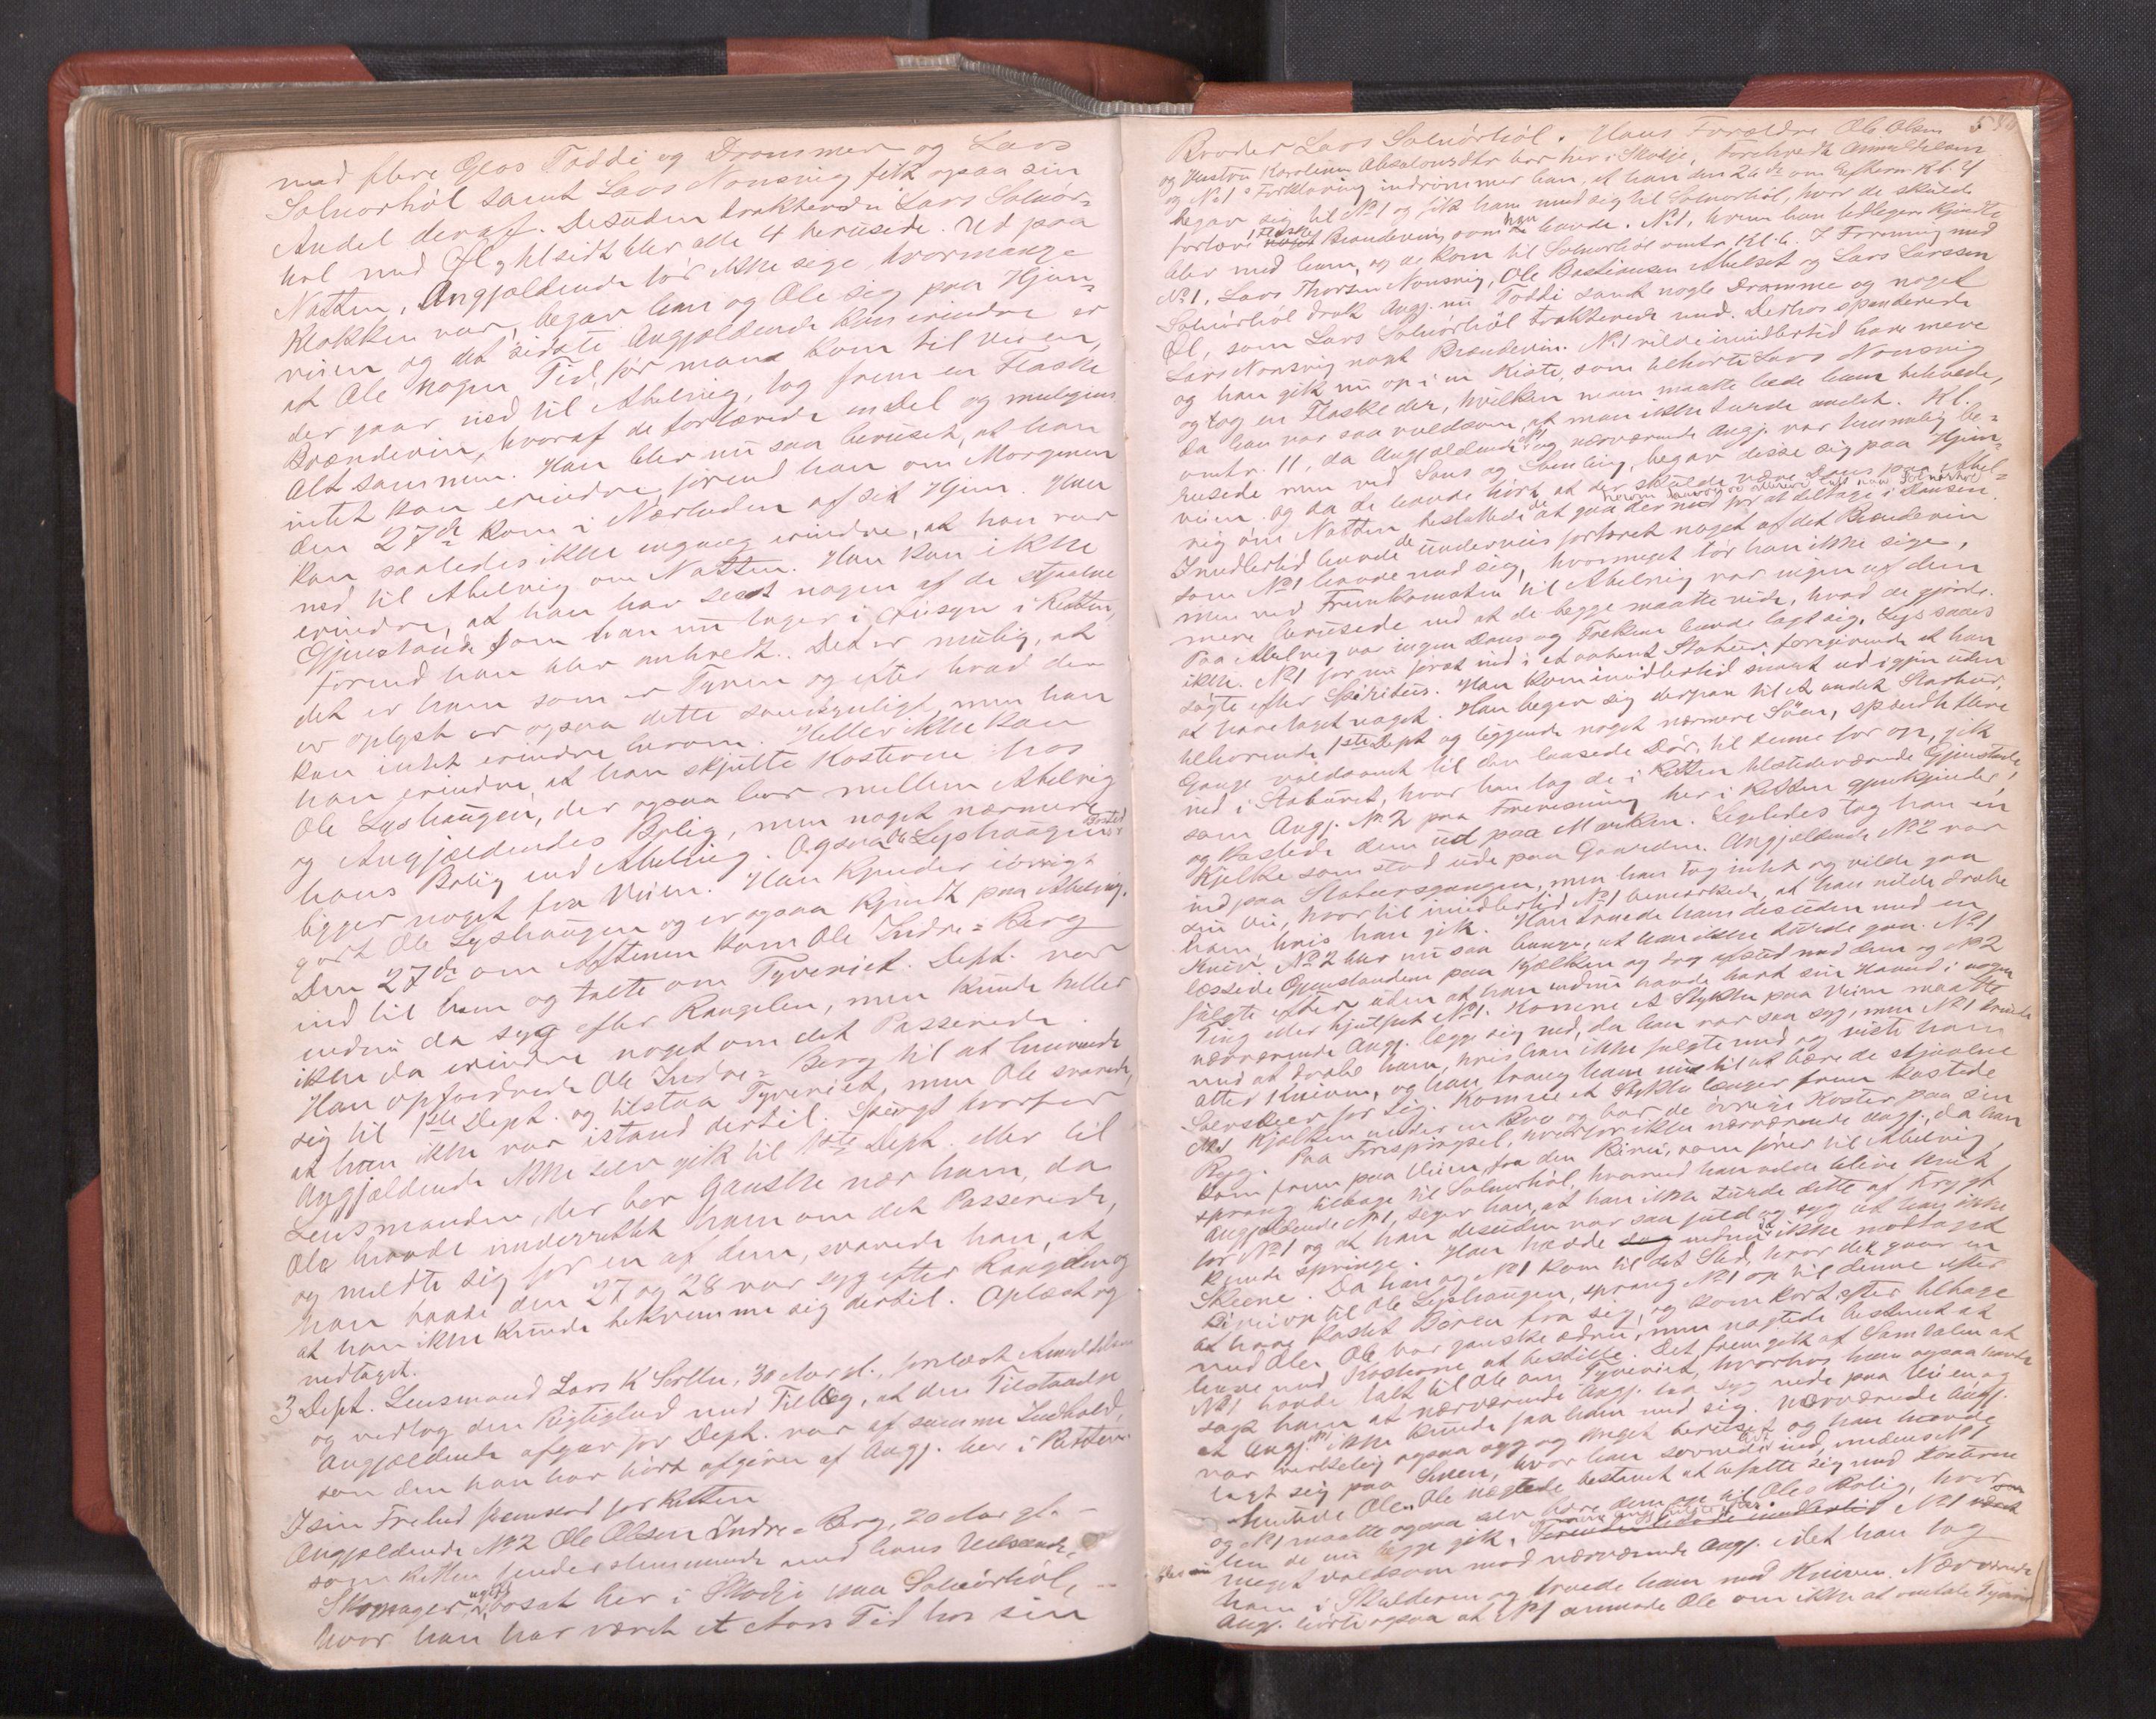 med flere Glas Toddi og Drammer og Lars
Solnørhöl samt Lars Nonsvig fik ogsaa sin
Andel deraf. Desuden trakterede Lars Solnör-
höl med Øl og tilsidst blev alle 4 berusede. Ud paa
Natten, Angjældende tör ikke sige hvormange
Klokken var, begav han og Ole sig paa Hjem-
veien og det sidste Angjældende kan erindre er
at Ole nogen Tid, för man kom til Veien,
der gaar ned til Abelvig, tog frem en Flaske
Brændevin, hvoraf de fortærede en Del og muligens
Alt sammen. Han blev nu saa beruset, at han
intet kan erindre förend han om Morgenen
den 27de kom i Nærheden af sit Hjem. Han
kan saaledes ikke engang erindre, at han var
ned til Abelvig om Natten. Han kan ikke
erindre, at han har seet nogen af de stjaalne
Gjenstande som han nu tager i Öiesyn i Retten,
förend han blev anholdt. Det er mulig, at
det er ham som er Tyven og efter hvad der
er oplyst er ogsaa dette sandsynligt, men han
kan intet erindre herom. Heller ikke kan
han erindre, at han skjulte Kosterne hos
Ole Lyshaugen, der ogsaa bor mellem Abelvig
og Angjældendes Bolig, men noget nærmere
hans Bolig end Abelvig. Ogsaa Ole Lyshaugens Sted
ligger noget fra Veien. Han kjender iövrigt
godt Ole Lyshaugen og er ogsaa kjendt paa Abelvig.
Den 27de om Aftenen kom Ole Indre-Berg
ind til ham og talte om Tyveriet. Dept. var
endnu da syg efter Rangelen, men kunde heller
ikke da erindre noget om det Passerede.
Han opfordrede Ole Indre-Berg til at henvende
sig til 1ste Dept. og tilstaa Tyveriet, men Ole svarede,
at han ikke var istand dertil. Spurgt hvorfor
Angjældende ikke selv gik til 1ste Dept. eller til
Lensmanden, der bor ganske nær ham, da
Ole havde underrettet ham om det Passerede,
og meldte sig for en af dem, svarede han, at
han baade den 27 og 28 var syg efter Rangelen og
at han ikke kunde bekvemme sig dertil. Oplæst og
vedtaget.
3 Dept. Lensmand Lars K Sorte, 30 Aar gl., forelæst Anmeldelsen
og vedtog den Rigtighed med Tillæg, at den Tilstaaelse
Angjældende afgav for Dept. var af samme Indhold,
som den han har hört afgiven af Angj. her i Retten.
I sin Frihed fremstod for Retten
Angjældende No 2 Ole Olsen Indre-Berg, 20 Aar gl. –
som Retten bemærkede med hans Udseende.
Skomager, ugift, bosat her i Skodje paa Solnörhöl, –
hvor han har været et Aars Tid hos sin
5
Broder Lars Solnörhöl. Hans Forældre Ole Olsen
og Hustru Karoline Absalonsdtr bor her i Skodje. Foreholdt Anmeldelsen
og No 1s Forklaring indrömmer han, at han den 26de om Efterm. Kl. 4
begav sig til No 1 og fik ham med sig til Solnörhöl, hvor de skulde
fortære 1 Flaske Brændevin, som han havde. No 1, hvem han tidligere kjendte
blev med ham, og de kom til Solnörhöl omtr. Kl. 6. I Forening med
No 1, Lars Thorsen Nonsvig, Ole Bastiansen Abelset og Lars Larssen
Solnörhöl drak Angj. nu Toddi samt nogle Dramme og noget
Öl, som Lars Solnörhöl trakterede med. Derhos spenderede
Lars Nonsvig noget Brændevin. No 1 vilde imidlertid have mere
og han gik nu op i en Kiste, som tilhörte Lars Nonsvig
og tog en Flaske der, hvilken man maatte lade ham beholde,
da han var saa voldsom, at man ikke turde andet. Kl.
omtr. 11, da Angjældende No 1 og nærværende Angj. var temmelig be-
rusede men ved Sans og Samling, begav disse sig paa Hjem-
veien. og da de havde hört, at der skulde være Dans paa Abel-
vig om Natten bestemte de at gaa der ned for at deltage i Dansen.
Imidlertid havde de underveis fortæret noget af det Brændevin
som No 1 havde med sig, hvormeget tör han ikke sige,
men ved Fremkomsten til Abelvig var ingen af dem
mere berusede end at de begge maatte vide, hvad de gjorde.
Paa Abelvig var ingen Dans og Folkene havde lagt sig. Lys saaes
ikke. No 1 for nu först ind i et aabent Stabur, foregivende at han
sögte efter Spiritus. Han kom imidlertid snart ud igjen uden
at have taget noget. Han begav sig derpaa til et andet Stabur,
tilhörende 1ste Dept. og liggende noget nærmere Söen, spændte flere
Gange voldsomt til den laasede Dör, til denne for op, gik
ind i Staburet, hvor han tog de i Retten tilstedeværende Gjenstande,
som Angj. No. 2 paa Forevisning her i Retten gjenkjender,
og kastede dem ud paa Marken. Ligeledes tog han en
Kjelke som stod ude paa Gaarden. Angjældende No 2 var
ind paa Stabursgangen, men han tog intet og vilde gaa
sin Vei, hvortil imidlertid No 1 bemærkede, at han vilde dræbe
ham hvis han gik. Han truede ham desuden med en
Kniv. No 2 blev nu saa bange, at han ikke turde gaa. No 1
læssede Gjenstandene paa Kjælken og drog afsted med dem og No 2
fulgte efter uden at han endnu havde havt sin Haand i nogen
Ting eller hjulpet No 1. Komne et Stykke paa Veien maatte
nærværende Angj. lægge sig ned, da han var saa syg, men No 1 truede
med at dræbe ham, hvis han ikke fulgte med og viste ham
atter Kniven, og han tvang ham nu til at bære de stjaalne
for sig. Komne et Stykke længer frem kastede
No 1 Kjælken under en Bro og bar de övrige Koster paa sin
Ryg. Paa Forespörgsel, hvorfor ikke nærværende Angj., da han
kom frem paa Veien fra den Bivei, som förer til Abelvig,
sprang tilbage til Solnörhöl, hvorved han vilde blive kvit
Angjældende No 1, siger han, at han ikke turde dette af Frygt
for No 1 og at han desuden var saa fuld og syg at han ikke
kunde springe. Han havde endnu ikke modtaget
Skoene. Da han og No 1 kom til det Sted, hvor det gaar en
Bivei op til Ole Lyshaugen, sprang No 1 op til denne efter
at have kastet Boren fra sig, og kom kort efter tilbage
med Ole. Ole var ganske ædru, men nægtede bestemt at
have med Kosterne at bestille. Det fremgik af Samtalen at
No 1 havde talt til Ole om Tyveriet, hvorhos han ogsaa havde
sagt ham at nærværende Angj. laa syg nede paa Veien og
at Angj. No 1 ikke kunde faa ham med sig. Nærværende Angj.
var virkelig ogsaa syg og meget beruset og han havde
lagt sig paa Sneen, hvor han sovnede lidt ind, medens No 1
hentede Ole. Ole nægtede bestemt at befatte sig med Kosterne
og No 1 maatte ogsaa selv bære dem op til Oles Bolig, hvor-
hen de nu begge gik. No 1 var
meget voldsom mod nærværende Angj. idet han tog
ham i Skulderen og truede ham med Kniven. Nærværende
Angj. hörte ogsaa at No 1 anmode Ole om ikke at omtale Tyveriet